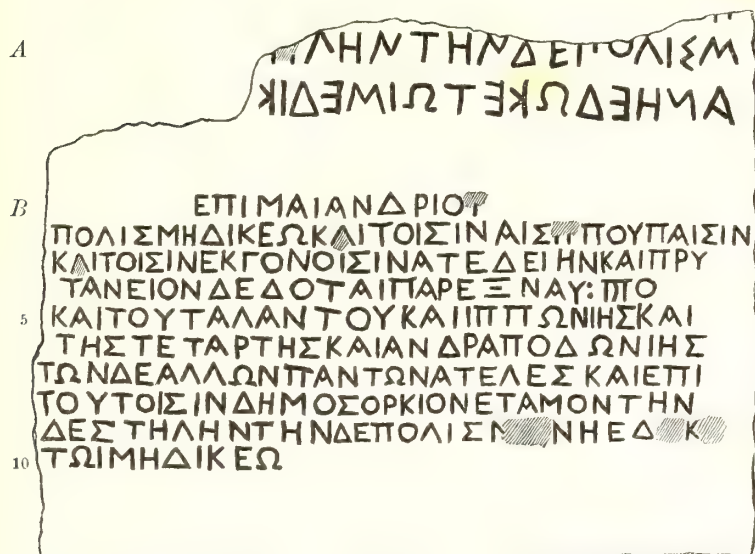 A ΛΗΝΤΗΝΔΕΠΟΛΙΣΜ
ΑΝΗΕΔΩΚΕΤΩΙΜΕΔΙΚ
B ΕΠΙΜΑΙΑΝΔΡΙΟΥ
ΠΟΛΙΣΜΗΔΙΚΕΩΚΑΙΤΟΙΣΙΝΑΙΣΗΠΟΥΠΑΙΣΙΝ
ΚΑΙΤΟΙΣΙΝΕΚΓΟΝΟΙΣΙΝΑΤΕΛΕΙΗΝΚΑΙΠΡΥ
ΤΑΝΕΙΟΝΔΕΔΟΤΑΙΠΑΡΕΞΝΑΥ:ͲΟ
5 ΚΑΙΤΟΥΤΑΛΑΝΤΟΥΚΑΙΙΠΠΩΝΙΗΣΚΑΙ
ΤΗΣΤΕΤΑΡΤΗΣΚΑΙΑΝΔΡΑΠΟΔΩΝΙΗΣ
ΤΩΝΔΕΑΛΛΩΝΠΑΝΤΩΝΑΤΕΛΕΣΚΑΙΕΠΙ
ΤΟΥΤΟΙΣΙΝΔΗΜΟΣΟΡΚΙΟΝΕΤΑΜΟΝΤΗΝ
ΔΕΣΤΗΛΗΝΤΗΝΔΕΠΟΛΙΣΜ ΝΗΕΔ Κ
10 ΤΩΙΜΗΔΙΚΕΩ